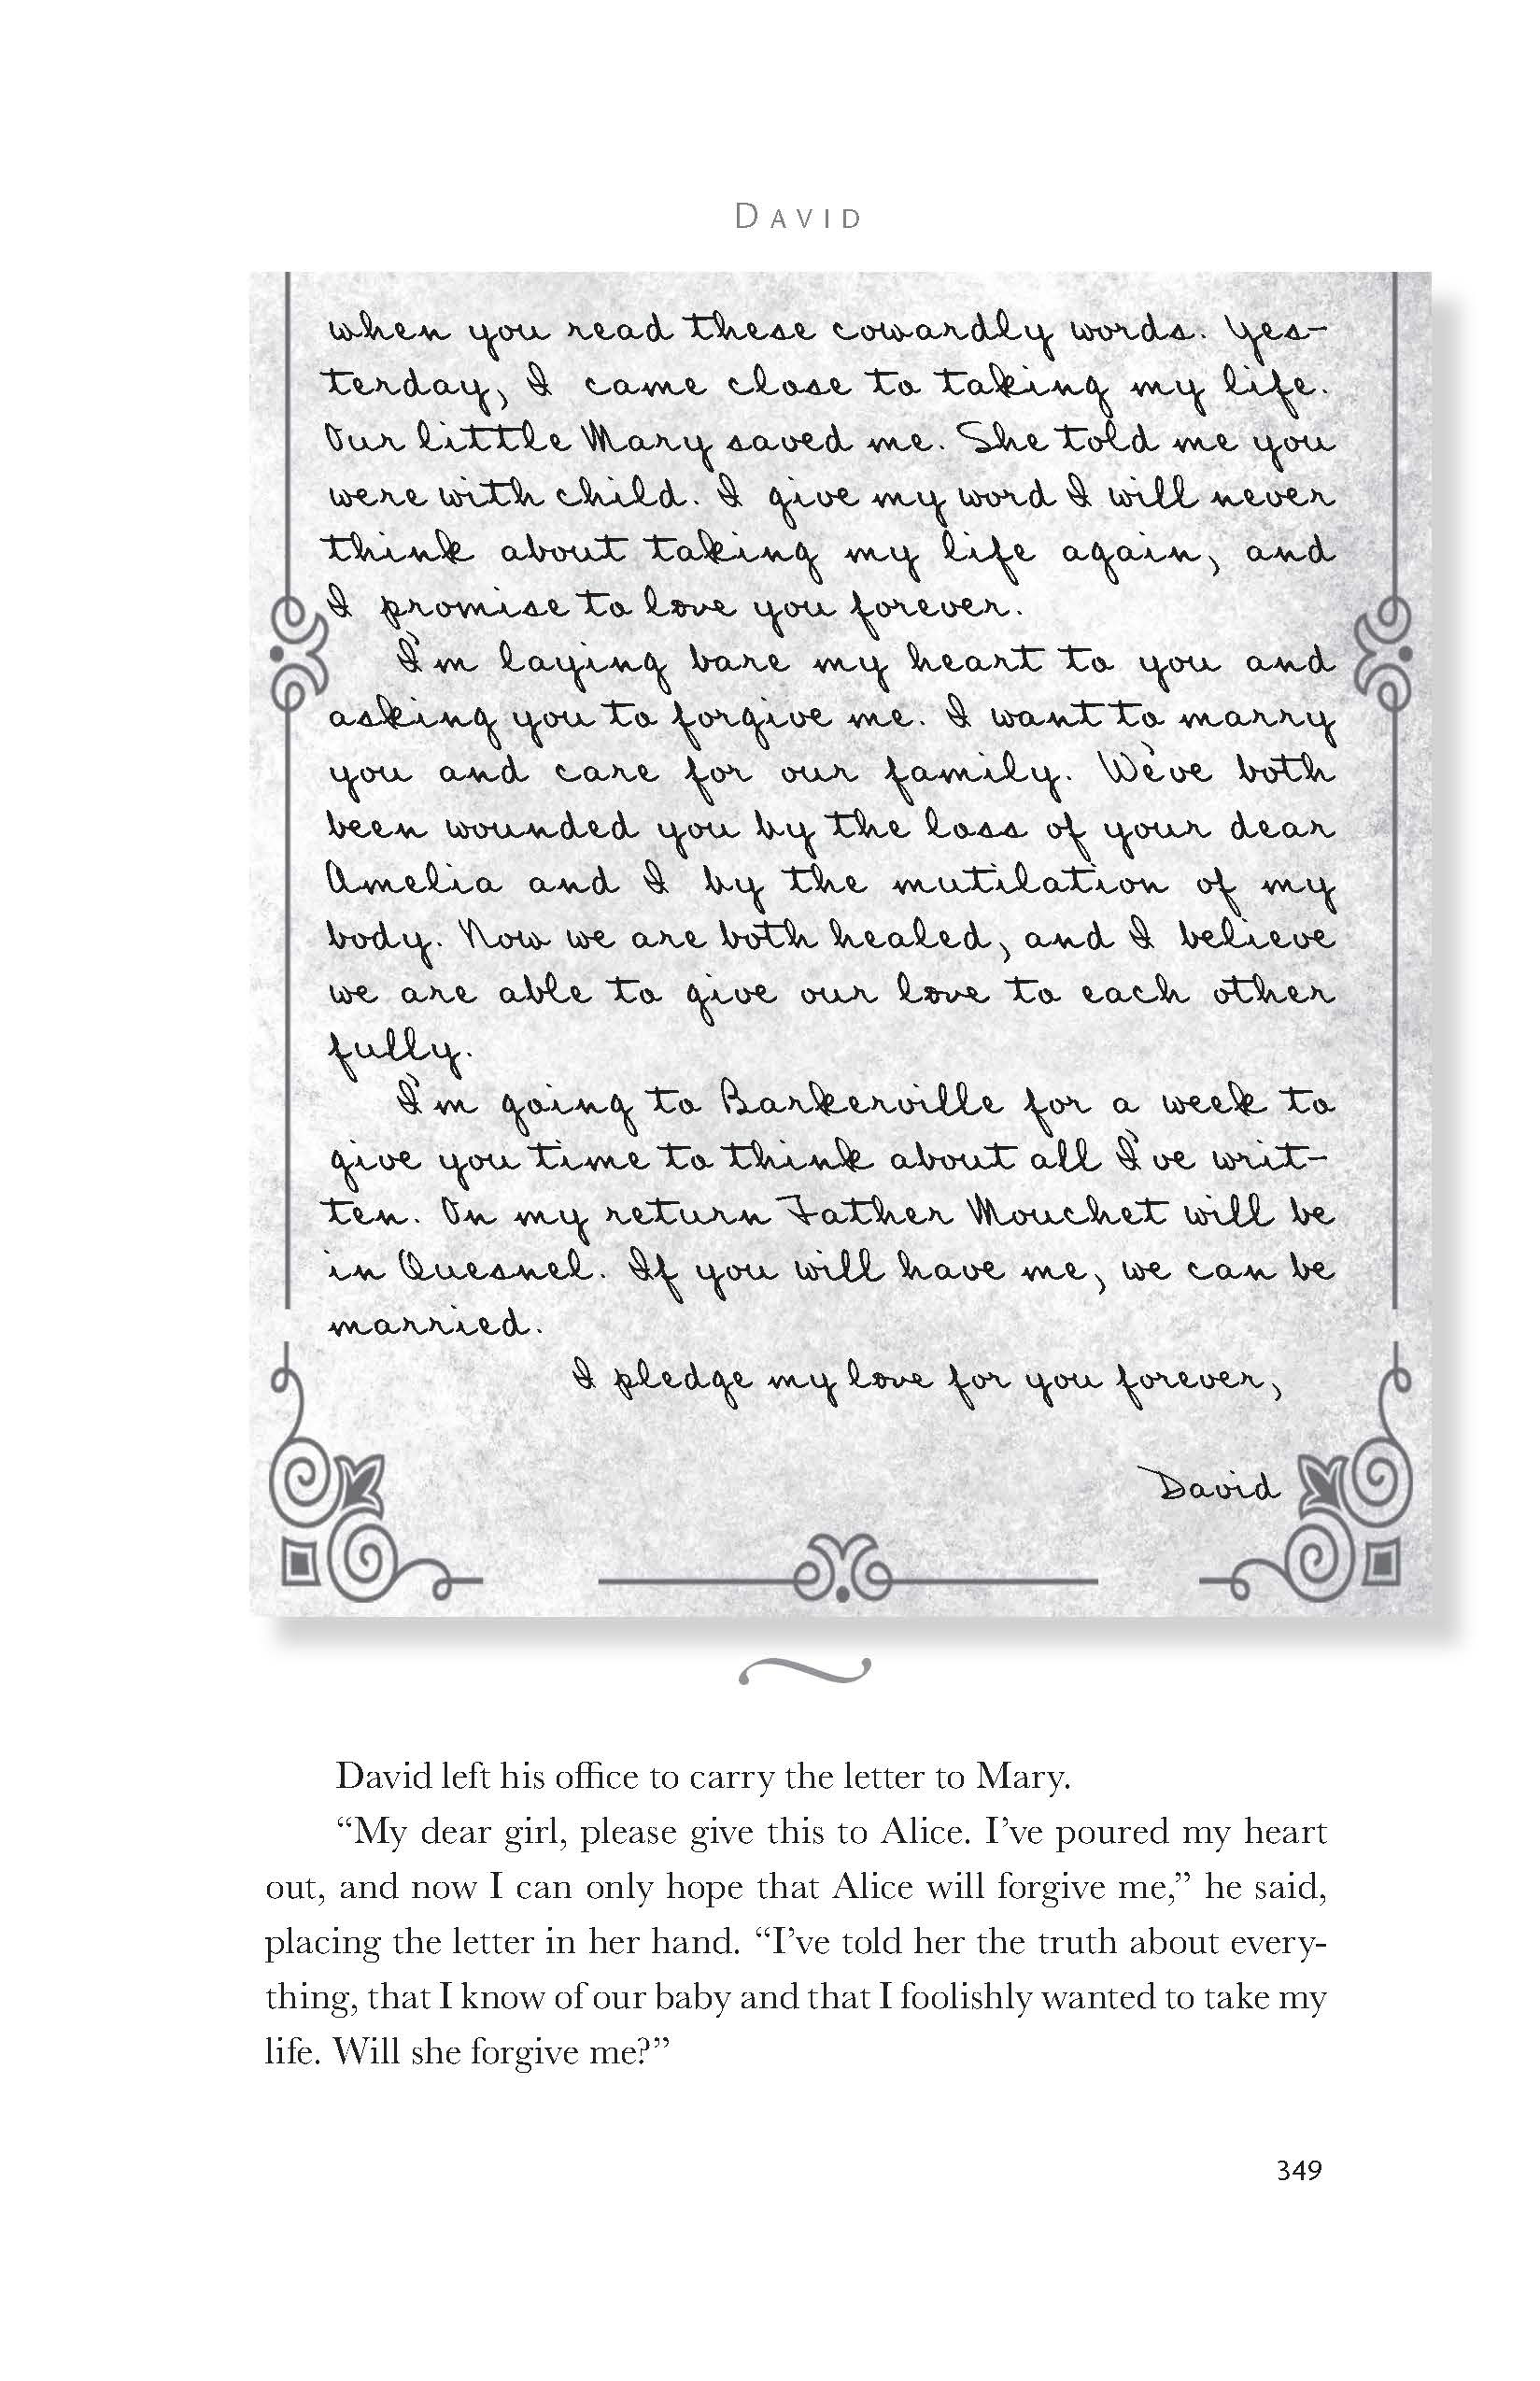 DAVID
when you read these cowardly words. Yes-
terday, I came close to taking my life.
Our little Mary saved me. She told me you
were with child. I give my word I will never
think about taking my life again, and
I promise to love you forever.
I'm laying bare my heart to you and
asking you to forgive me. I want to marry
you and care for our family. We've both
been wounded you by the loss of your dear
Amelia and I by the mutilation of my
body. Now we are both healed, and I believe
we are able to give our love to each other
fully.
I'm going to Barkerville for a week to
give you time to think about all I've writ-
ten. On my return Father Mouchet will be
in Quesnel. If you will have me, we can be
married.
I pledge my love for you forever,
David
David left his office to carry the letter to Mary.
“My dear girl, please give this to Alice. I’ve poured my heart
out, and now I can only hope that Alice will forgive me,” he said,
placing the letter in her hand. “I’ve told her the truth about every-
thing, that I know of our baby and that I foolishly wanted to take my
life. Will she forgive me?”
349